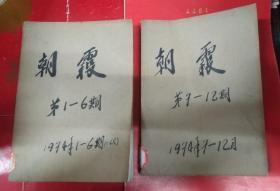 朝霞
第1-6期
1974年1-6期
朝霞
第7-12期
1974年7-12月